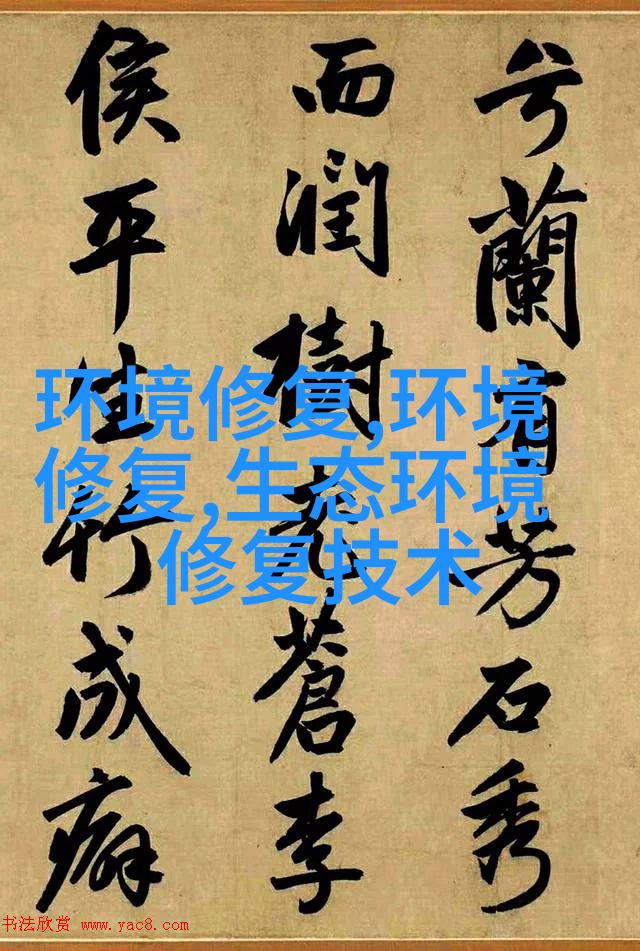 兮蘭有芳石秀
而潤樹蒼李
侯平生竹成癖
环境修复,环境
修复,生态环境
修复技术
书法欣赏 www.yac8.com